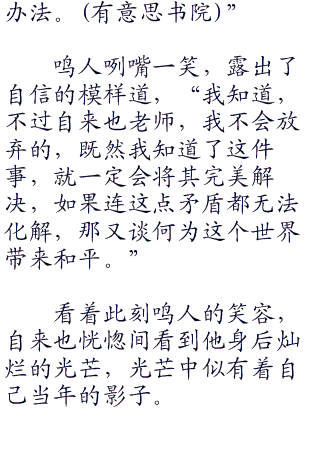 办法。(有意思书院)”
鸣人咧嘴一笑，露出了
自信的模样道，“我知道，
不过自来也老师，我不会放
弃的，既然我知道了这件
事，就一定会将其完美解
决，如果连这点矛盾都无法
化解，那又谈何为这个世界
带来和平。”
看着此刻鸣人的笑容，
自来也恍惚间看到他身后灿
烂的光芒，光芒中似有着自
己当年的影子。